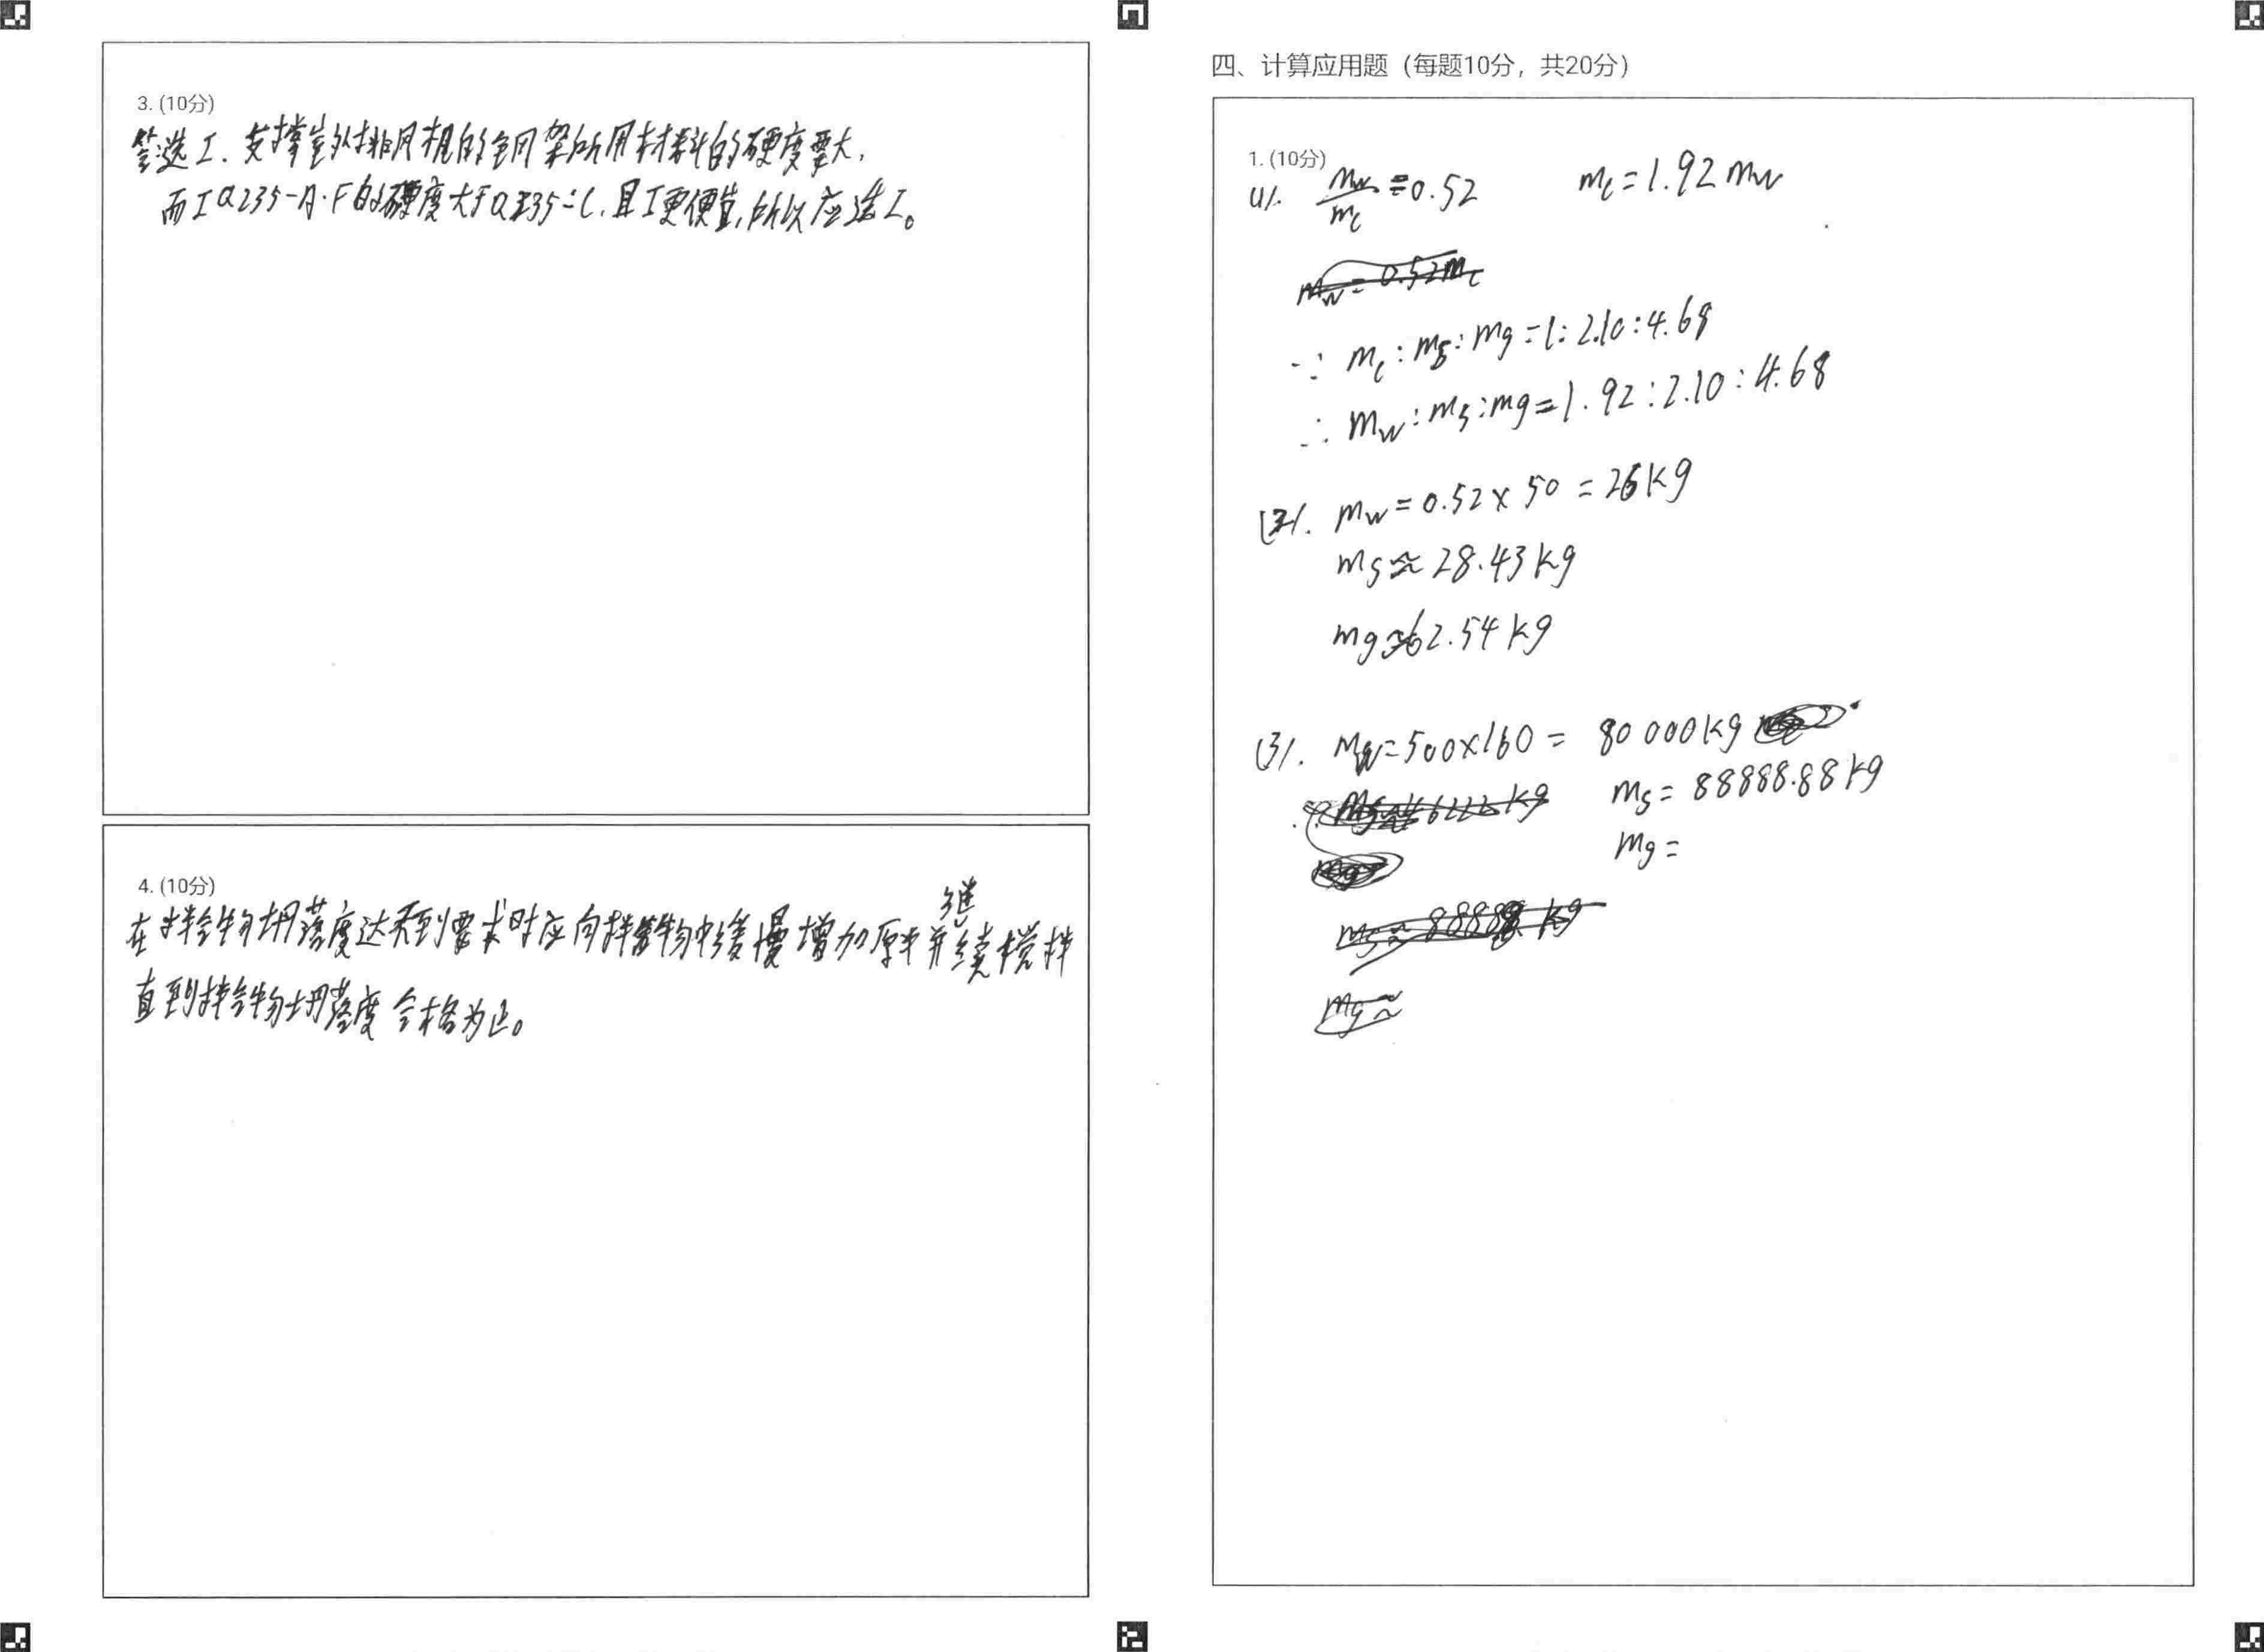 3. (10分)
答:选I.支撑室外排风机的钢架所用材料的硬度要大,
而I Q235-A·F的硬度大于Q235-C,且I更便宜,所以应选I。
4. (10分)
继
在拌合物坍落度达不到要求时应向拌合物中缓慢增加原 并续搅拌
直到拌合物坍落度合格为止。
四、计算应用题(每题10分,共20分)
1. (10分)
(1). mw/mc=0.52 mc=1.92mw
mw=0.52mc
∵ mc:ms:mg=1:2.10:4.68
∴ mw:ms:mg=1.92:2.10:4.68
(2). mw=0.52×50=26kg
ms≈28.43kg
mg≈62.54kg
(3). mw=500×160= 80000kg
ms=88888.88kg
mg=
ms≈88888 kg
mg≈